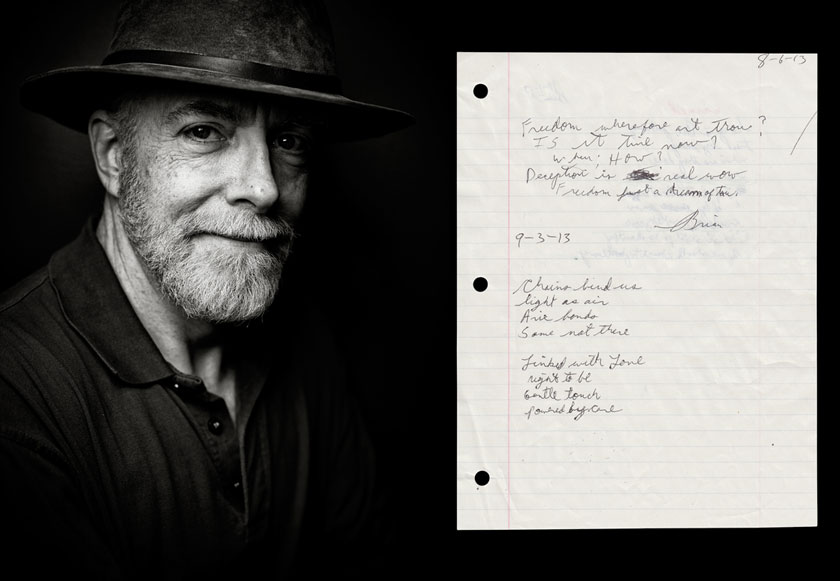 8-6-13
Freedom wherefore art trou?
IS it time now?
When; How?
Deception in real wow
Freedom just a dream of tou.
Brian
9-3-13
Chains bind us
light as air
Are bonds
Some not there
Linked with Love
right to be
Gentle touch
powered by care